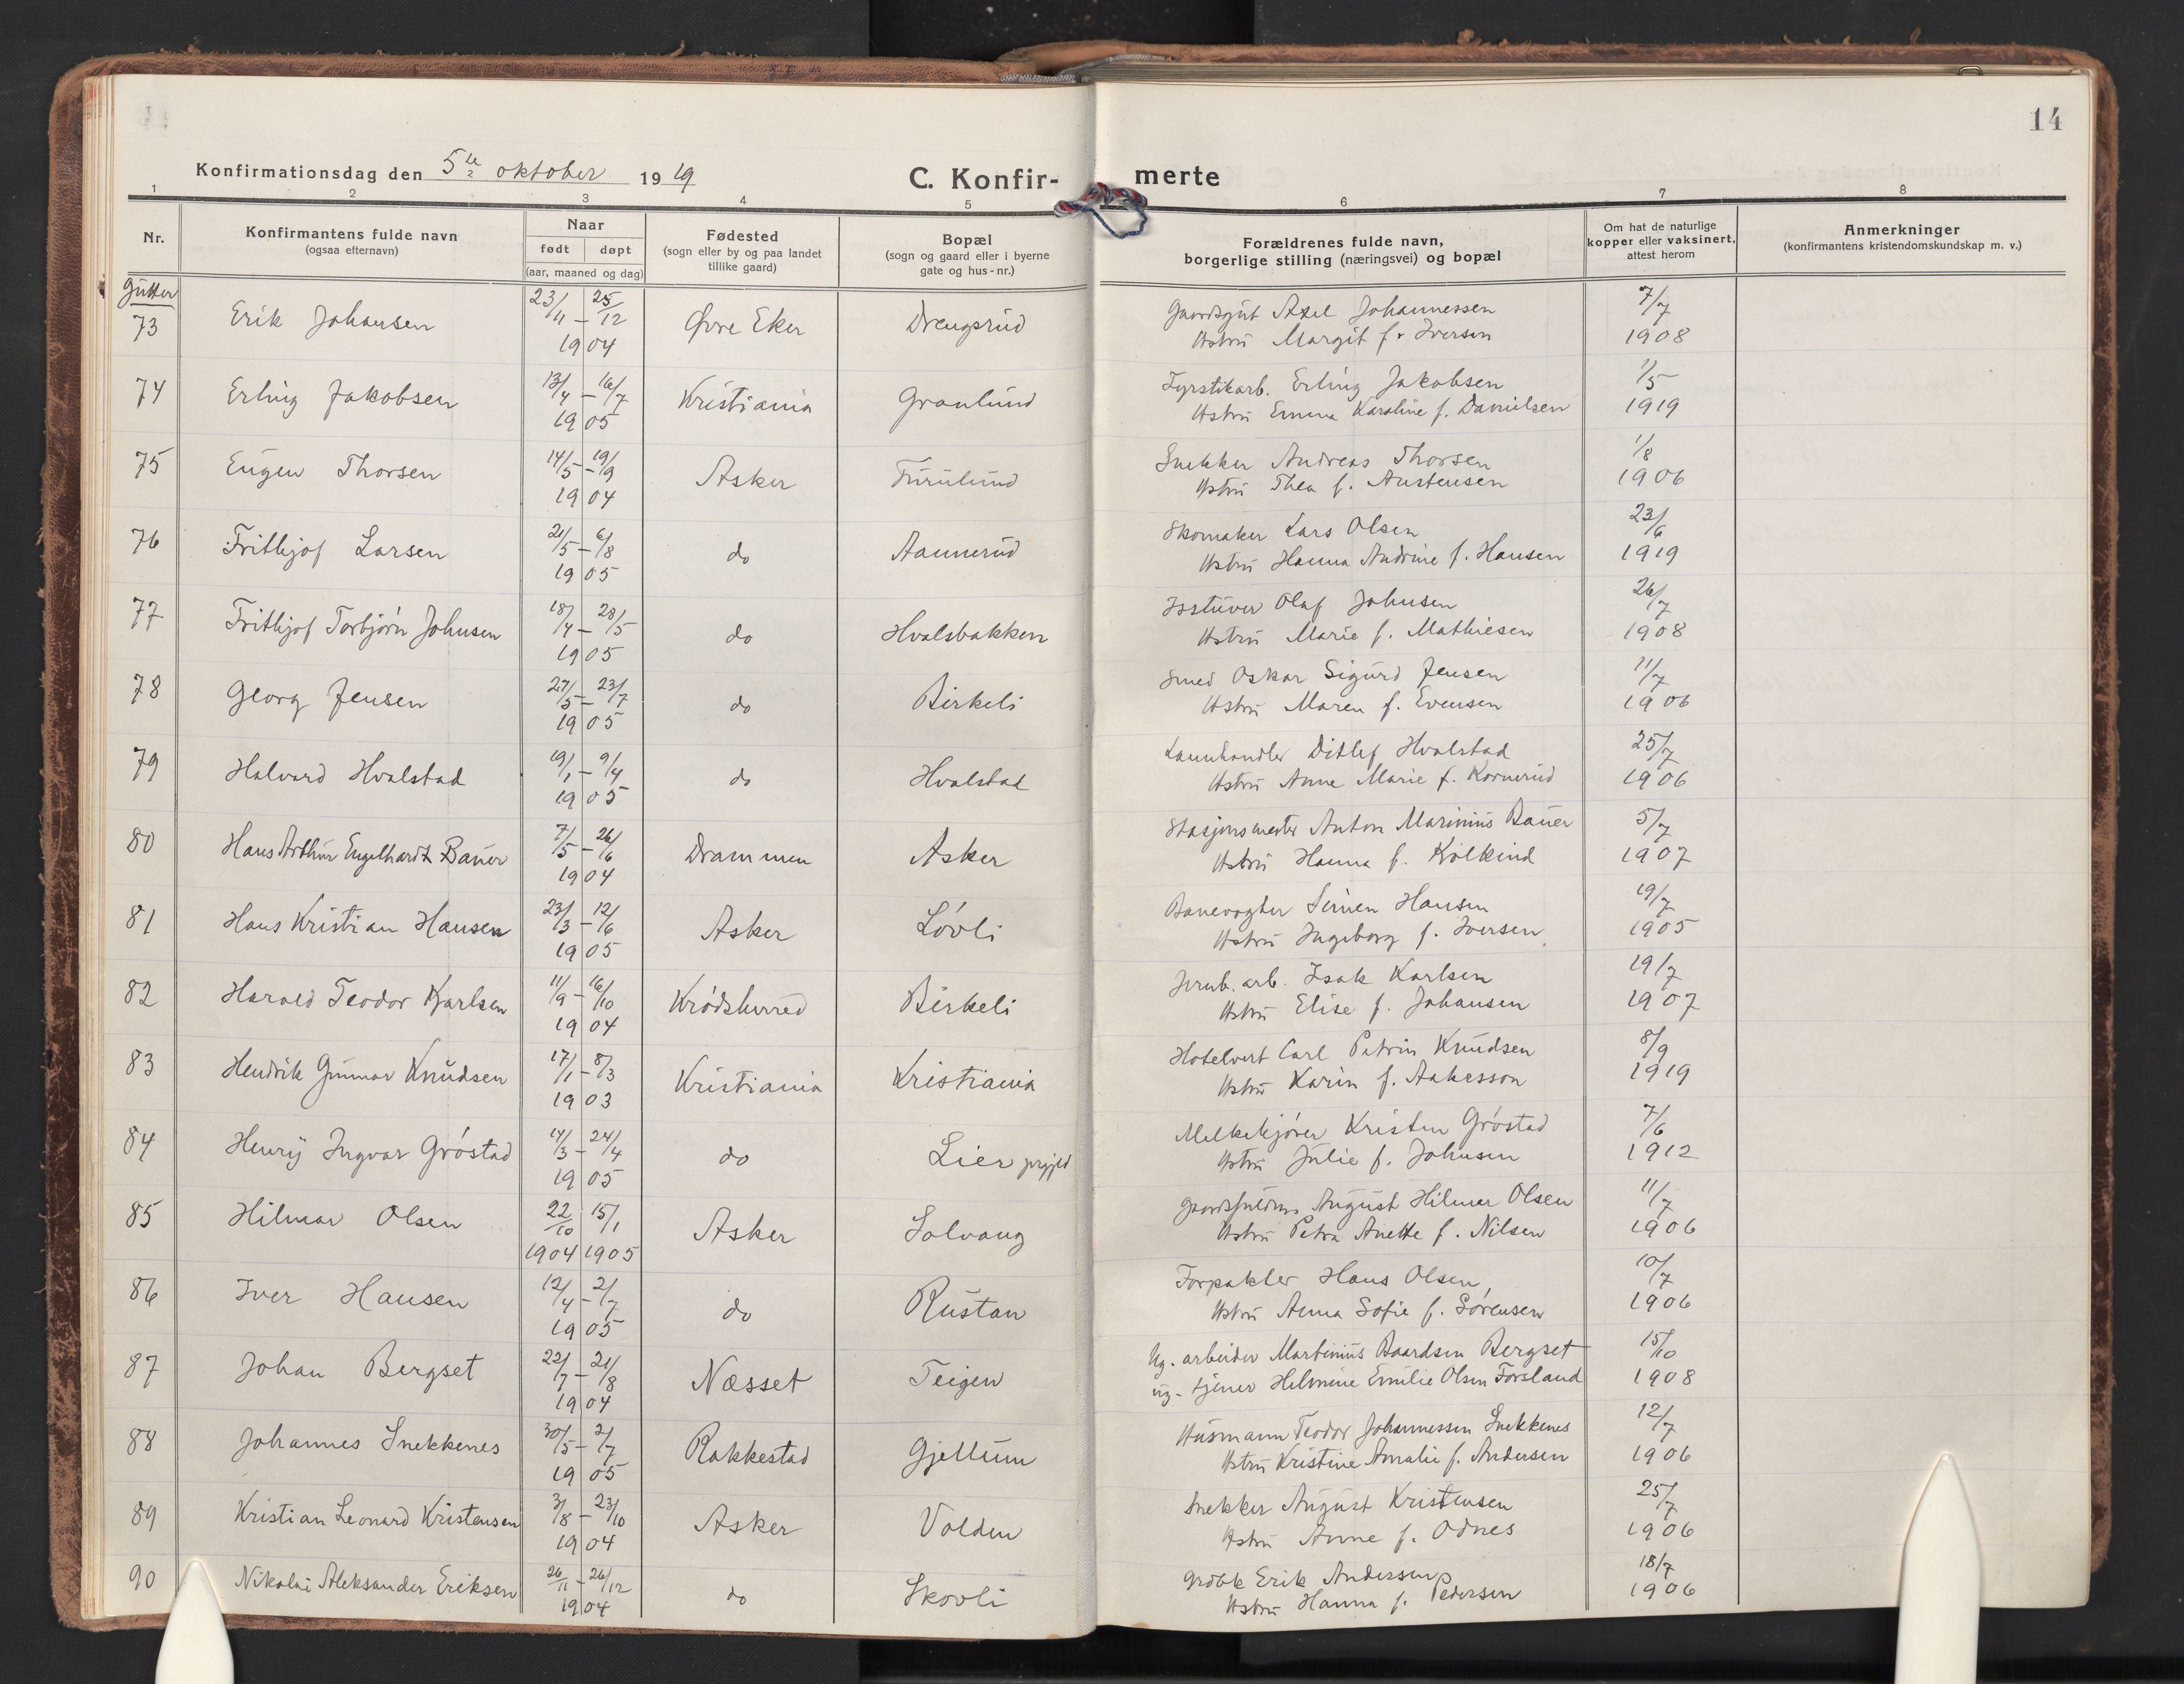 14
Konfirmationsdag den 5te oktober 1919
C. Konfir-
merte
1 2 3 4 5 6 7 8
Nr.
Konfirmantens fulde navn
(ogsaa efternavn)
Naar
født døpt
(aar, maaned og dag)
Fødested
(sogn eller by og paa landet
tillike gaard)
Bopæl
(sogn og gaard eller i byerne
gate og hus-nr.)
Forældrenes fulde navn,
borgerlige stilling (næringsvei) og bopæl
Om hat de naturlige
kopper eller vaksinert,
attest herom
Anmerkninger
(konfirmantens kristendomskundskap m. v.)
Gutter
73 Erik Johansen 23/11 – 25/12 1904 Øvre Eker Drengsrud Gaardsgut Axel Johannessen 7/7
Hstru Margit f. Iversen 1908
74 Erling Jakobsen 13/4 – 16/7 1905 Kristiania Granlund Fyrstikarb. Erling Jakobsen 1/5
Hstru Emma Karoline f. Danielsen 1919
75 Eugen Thorsen 14/5 – 19/9 1904 Asker Furulund Snekker Andreas Thorsen 1/8
Hstru Thea f. Austensen 1906
76 Frithjof Larsen 21/5 – 6/8 1905 do Aannerud Skomaker Lars Olsen 23/6
Hstru Hanna Andrine f. Hansen 1919
77 Frithjof Torbjörn Johnsen 18/4 – 28/5 1905 do Hvalsbakken Isstuver Olaf Johnsen 26/7
Hstru Marie f. Mathiesen 1908
78 Georg Jensen 27/5 – 23/7 1905 do Birkeli Smed Oskar Sigurd Jensen 11/7
Hstru Maren f. Evensen 1906
79 Halvard Hvalstad 19/1 – 9/4 1905 do Hvalstad Lannhandler Ditlef Hvalstad 25/7
Hstru Anne Marie f. Kornerud 1906
80 Hans Arthur Engelhardt Bauer 7/5 – 26/6 1904 Drammen Asker Stasjonsmester Anton Marinius Bauer 5/7
Hstru Hanna f. Kolkind 1907
81 Hans Kristian Hansen 23/3 – 12/6 1905 Asker Lövli Banevogter Simen Hansen 19/7
Hstru Ingeborg f. Iversen 1905
82 Harald Teodor Karlsen 11/9 – 16/10 1904 Krödsherred Birkeli Jernb. arb. Isak Karlsen 19/7
Hstru Elise f. Johansen 1907
83 Hendrik Gunnar Knudsen 17/1 – 8/3 1903 Kristiania Kristiania Hotelvert Carl Petrin Knudsen 8/9
Hstru Karin f. Aakesson 1919
84 Henry Ingvar Gröstad 14/3 – 24/4 1905 do Lier prgjld Melkekjörer Kristen Gröstad 7/6
Hstru Julie f. Johnsen 1912
85 Hilmar Olsen 22/10 1904 15/1 1905 Asker Solvang August Hilmer Olsen 11/7
Hstru Petra Anette f. Nilsen 1906
86 Iver Hansen 12/4 – 2/7 1905 do Rustan Forpakter Hans Olsen 10/7
Hstru Anna Sofie f. Sörensen 1906
87 Johan Bergset 22/7 – 21/8 1904 Næsset Teigen Ug. arbeider Martinius Baardsen Bergset 15/10
ug. tjener Helmine Emilie Olsen Forsland 1908
88 Johannes Snekkenes 30/5 – 2/7 1905 Rakkestad Gjellum Husmann Teodor Johannessen Snekkenes 12/7
Hstru Kristine Amalie f. Andersen 1906
89 Kristian Leonard Kristensen 3/8 – 23/10 1904 Asker Volden Snekker August Kristensen 25/7
Hstru Anne f. Odnes 1906
90 Nikolai Aleksander Eriksen 26/11 – 26/12 1904 do Skovli Grdbk Erik Andersen 18/7
Hstru Hanna f. Pedersen 1906